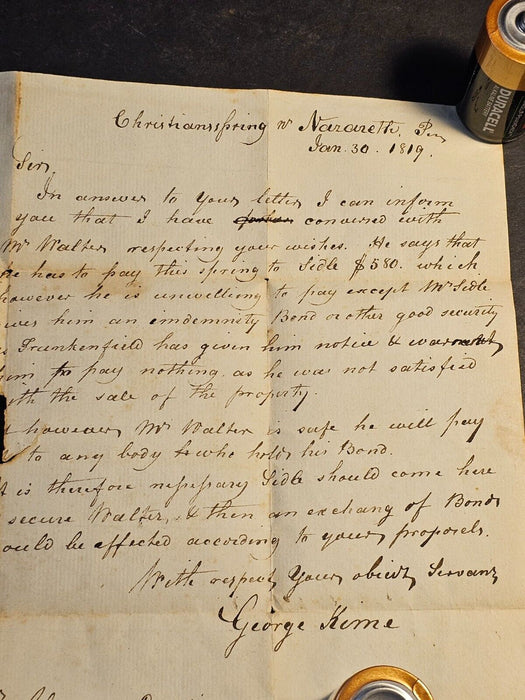 Christiansspring nr Nazareth, Pen
Jan. 30. 1819.
Sir,
In answer to your letter I can inform
you that I have conversed with
Mr Walter respecting your wishes. He says that
he has to pay this spring to Sidle $580. which
however he is unwilling to pay except Mr Sidle
ives him an indemnity Bond or other good security
s Frankenfield has given him notice & warned
him to pay nothing, as he was not satisfied
ith the sale of the property.
however, Mr Walter is safe he will pay
to any body who holds his Bond.
t is therefore nessessary Sidle should come here
secure Walter, & then an exchang of Bonds
ould be affected according to your proposels.
With respect Your obiedt Servant
George Kime
DURACELL